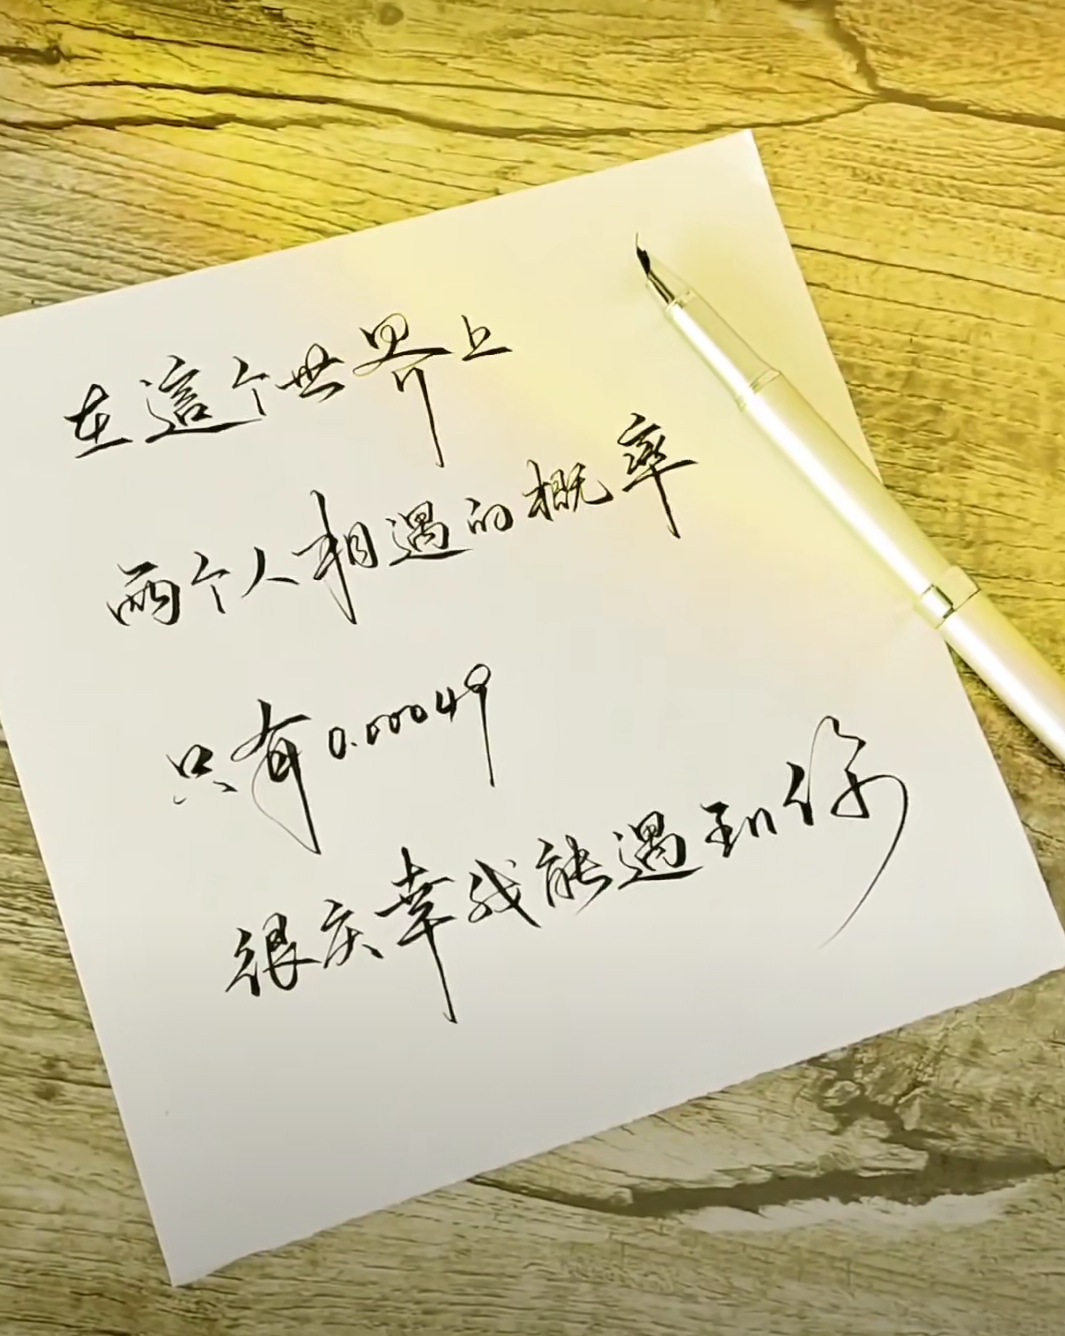 在這个世界上
两个人相遇的概率
只有0.00049
很庆幸我能遇到你